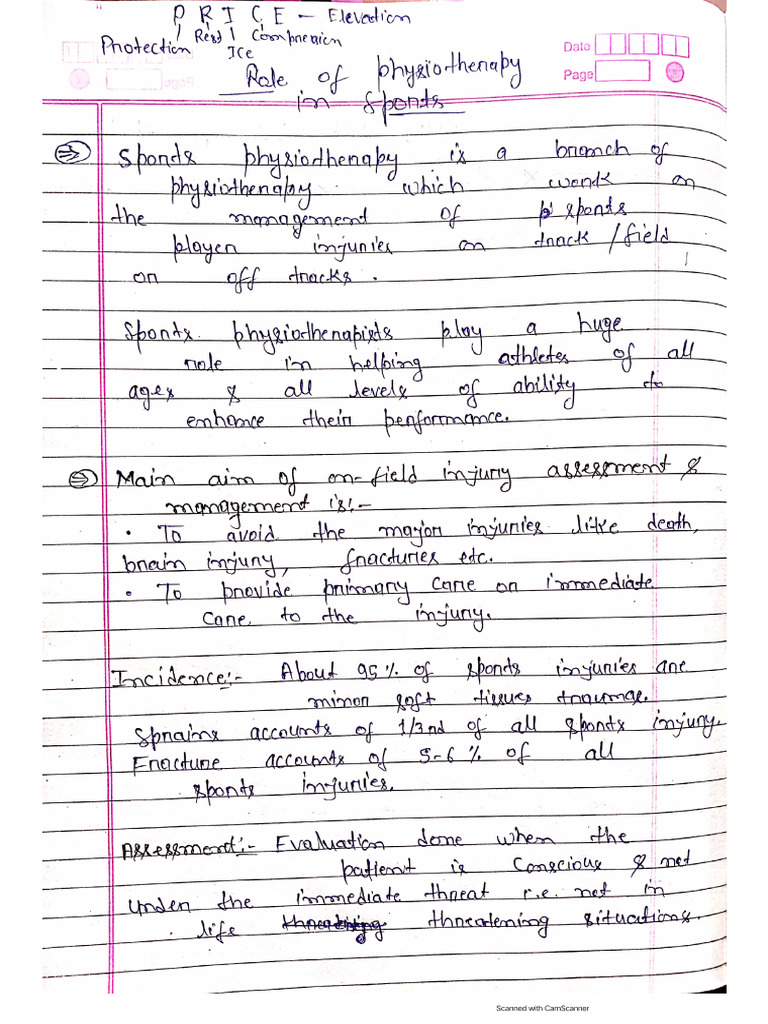 P R I C E - Elevation
Protection Rest Compression
Ice
Date
Page
Role of physiotherapy
in Sports
Sports physiotherapy is a branch of
physiotherapy which work on
the management of sports
player injuries on track / field
or off tracks.
Sports physiotherapists play a huge
role in helping athletes of all
ages & all levels of ability to
enhance their performance.
Main aim of on-field injury assessment &
management is:-
• To avoid the major injuries like death,
brain injury, fracturies etc.
• To provide primary care or immediate
care to the injury.
Incidence:- About 95% of sports injuries are
minor soft tissues traumas.
Sprains accounts of 1/3nd of all sports injury.
Fracture accounts of 5-6% of all
sports injuries.
Assessment:- Evaluation done when the
patient is conscious & not
under the immediate threat i.e. not in
life threatening situations.
Scanned with CamScanner